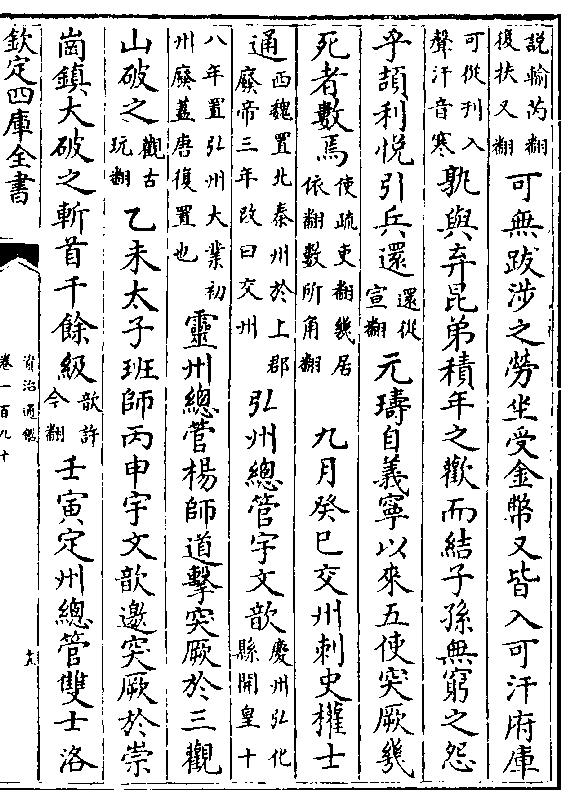 説輸芮翻復扶又翻可無跋涉之勞坐受金幣又皆入可汗府庫
可從刋入聲汗音寒孰與弃昆弟積年之歡而結子孫無窮之怨
乎頡利悅引兵還還從宣翻元璹自義寧以來五使突厥幾
死者數焉使疏吏翻幾居依翻數所角翻九月癸巳交州刺史權士
通西魏置北秦州於上郡廢帝三年改曰交州弘州總管宇文歆慶州弘化縣開皇十
八年置弘州大業初州廢蓋唐復置也靈州總管楊師道擊突厥於三觀
山破之觀古玩翻乙未太子班師丙申宇文歆邀突厥於崇
崗鎮大破之斬首千餘級歆許今翻壬寅定州總管雙士洛
欽定四庫全書
資治通鑑
卷一百九十